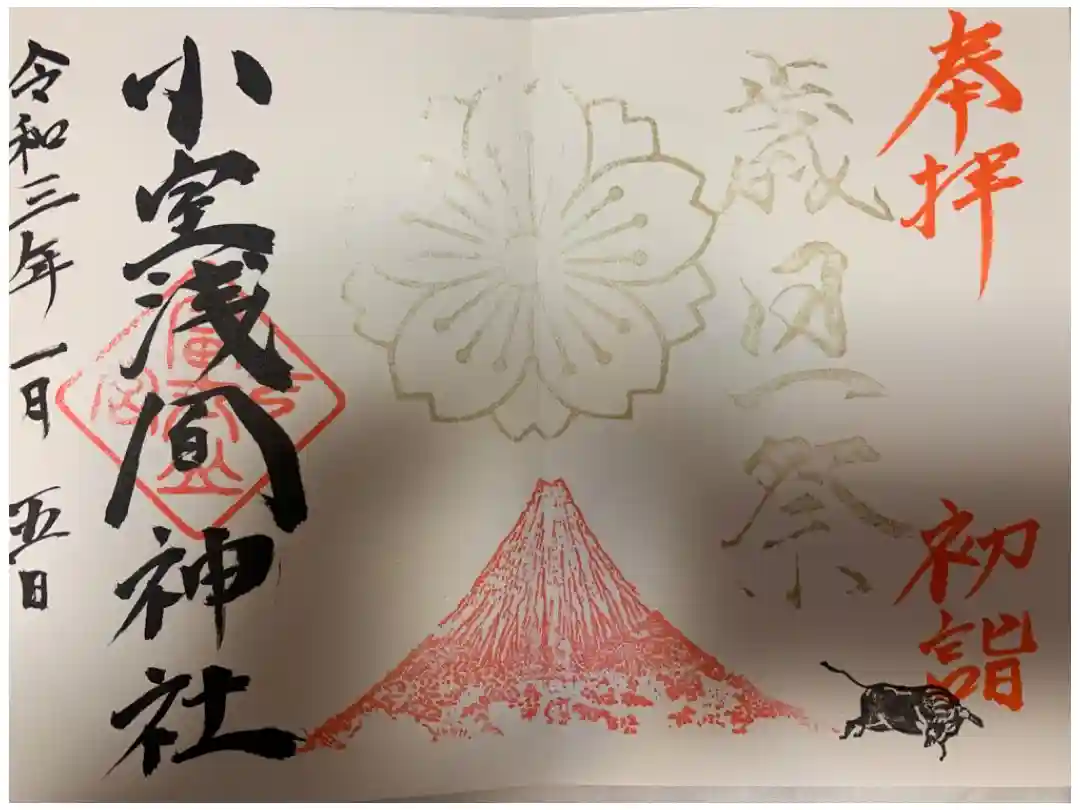 奉拝
初詣
歳旦祭
小室浅間神社
令和三年一月五日